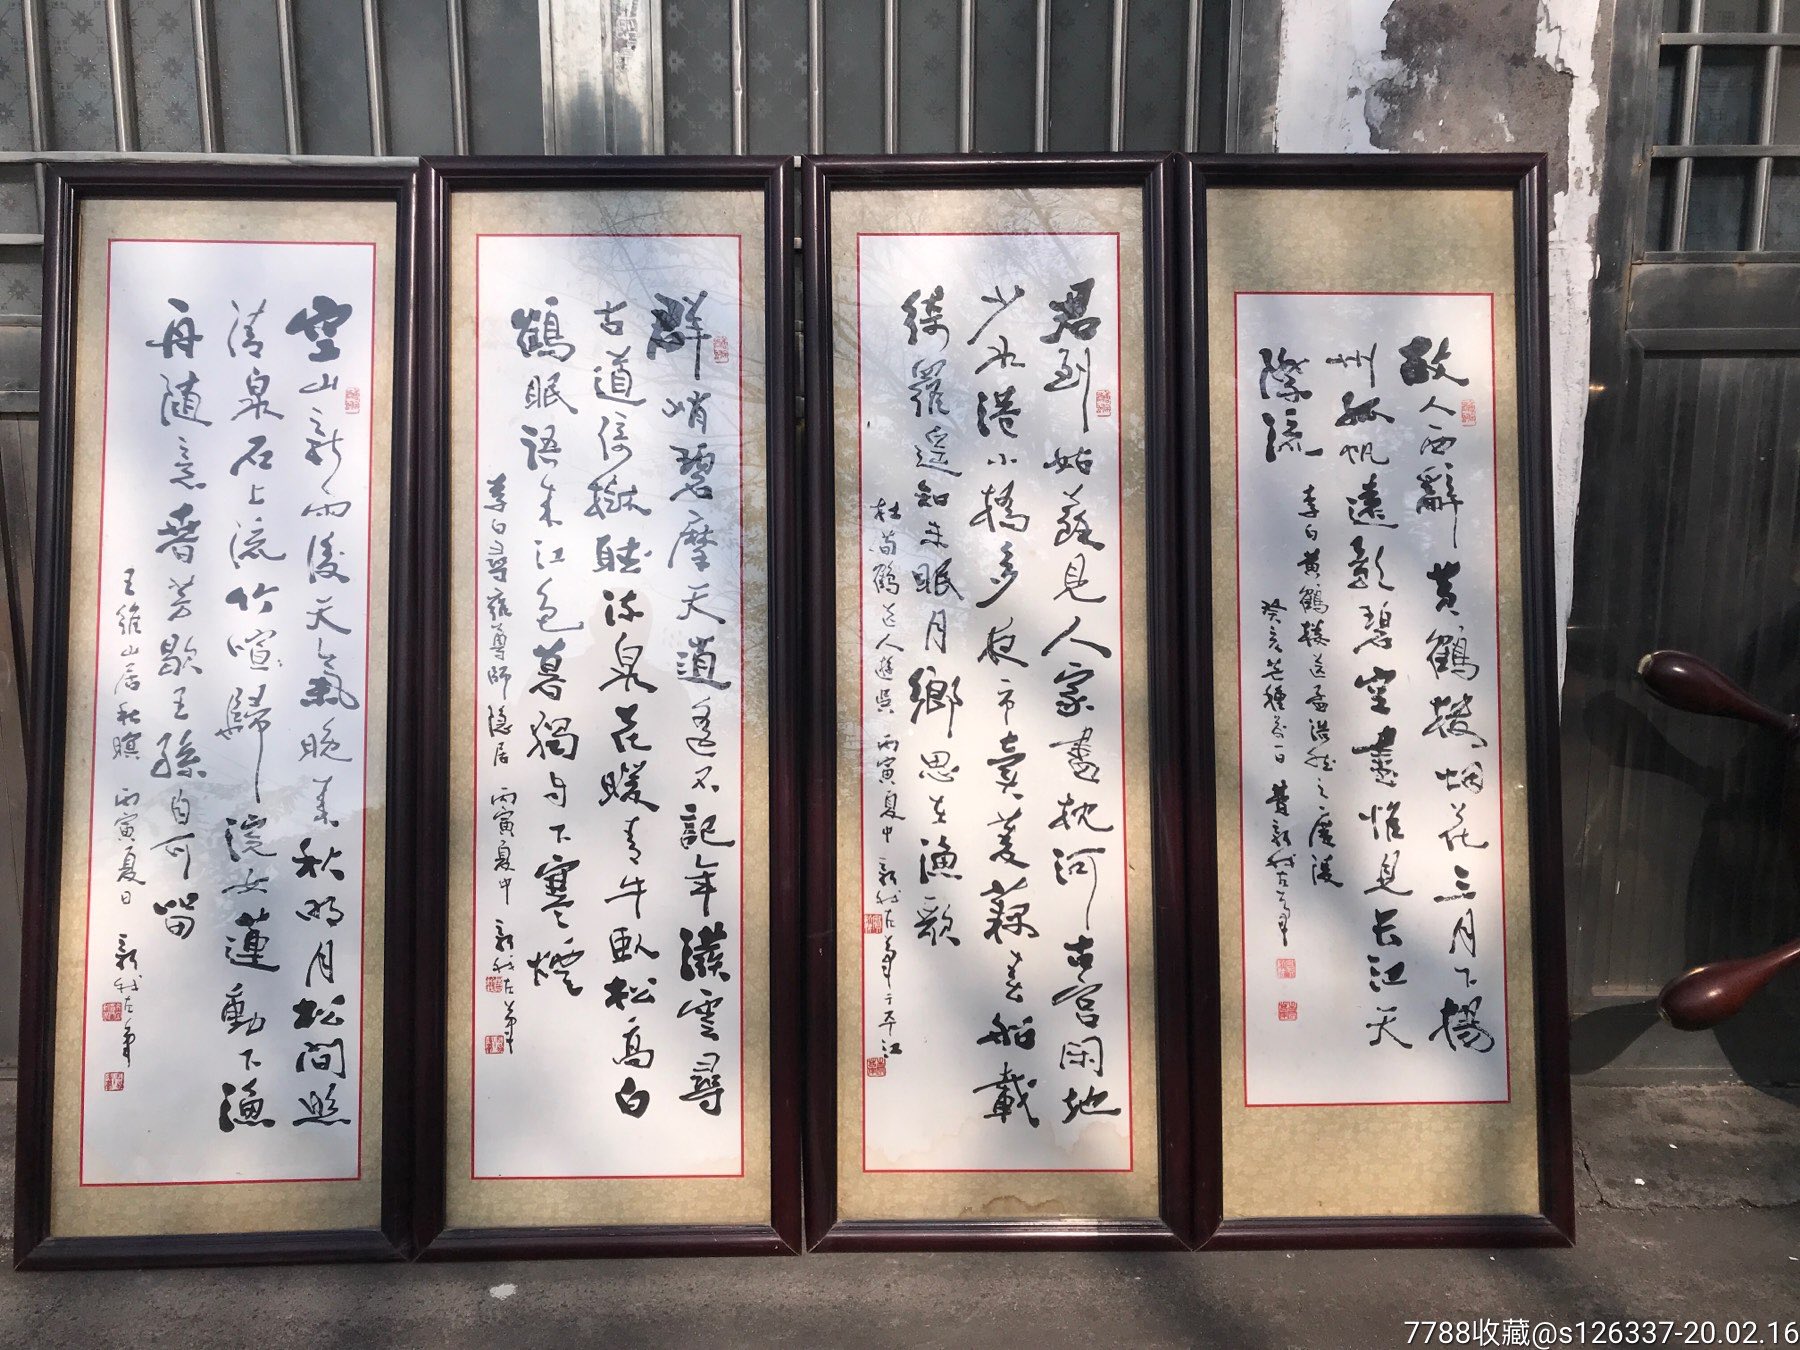 故人西辭黃鶴樓烟花三月下揚
州孤帆遠影碧空盡惟見長江天
際流
李白黃鶴樓送孟浩然之廣陵
癸亥芒種前一日 費新我左筆
君到姑蘇見人家盡枕河古宮閑地
少水港小橋多夜市賣菱藕春船載
綺羅遥知未眠月鄉思在漁歌
杜荀鶴送人遊吳 丙寅夏中 新我左筆于平江
群峭碧摩天逍遙不記年撥雲尋
古道倚樹聽流泉花暖青牛臥松高白
鶴眠語來江色暮獨自下寒煙
李白尋雍尊師隱居 丙寅夏中 新我左筆
空山新雨後天氣晚來秋明月松間照
清泉石上流竹喧歸浣女蓮動下漁
舟隨意春芳歇王孫自可留
王維山居秋暝 丙寅夏日 新我左筆
7788收藏@s126337-20.02.16